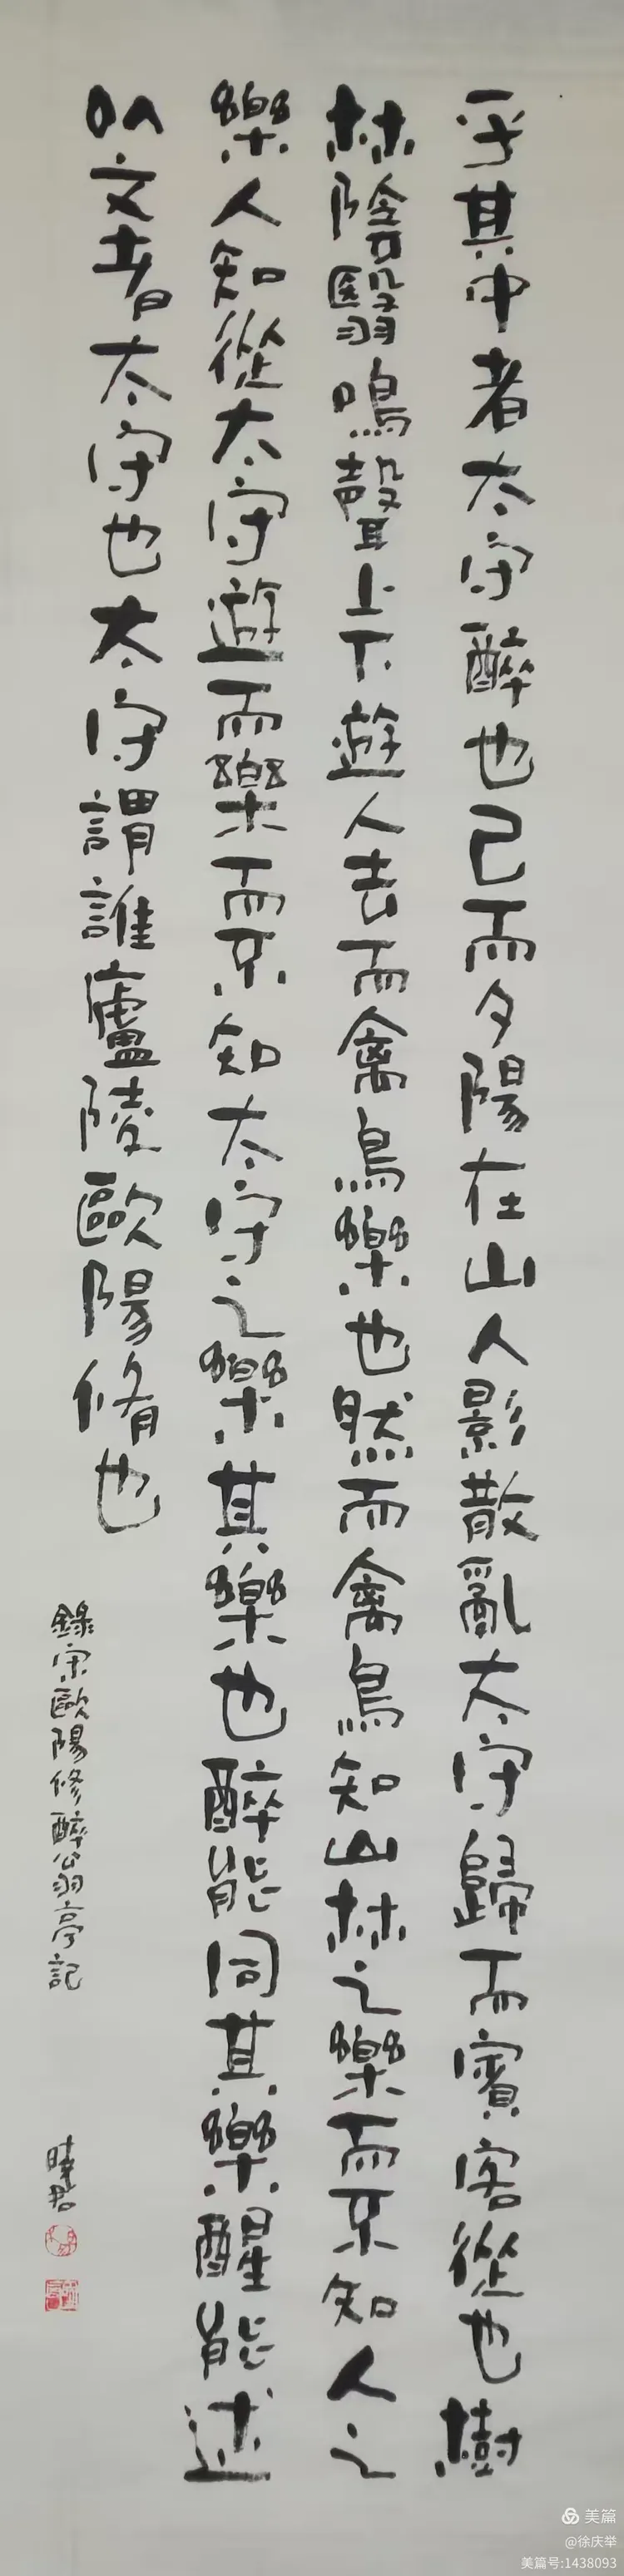 乎其中者太守醉也已而夕陽在山人影散亂太守歸而賓客從也樹
林陰翳鳴聲上下遊人去而禽鳥樂也然而禽鳥知山林之樂而不知人之
樂人知從太守遊而樂而不知太守之樂其樂也醉能同其樂醒能述
以文者太守也太守謂誰廬陵歐陽脩也
錄宋歐陽修醉翁亭記
曉君
美篇
@徐庆举
美篇号:1438093